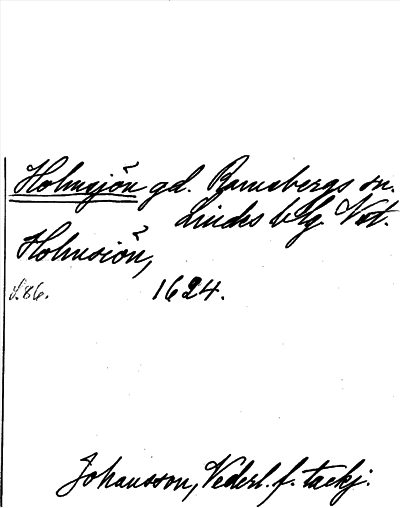 Holmsjön gd. Ramsbergs sn.
Lindes blg. Vst.
Holmsiön,
s. 86. 1624.
Johansson, Vederl. f. tackj.